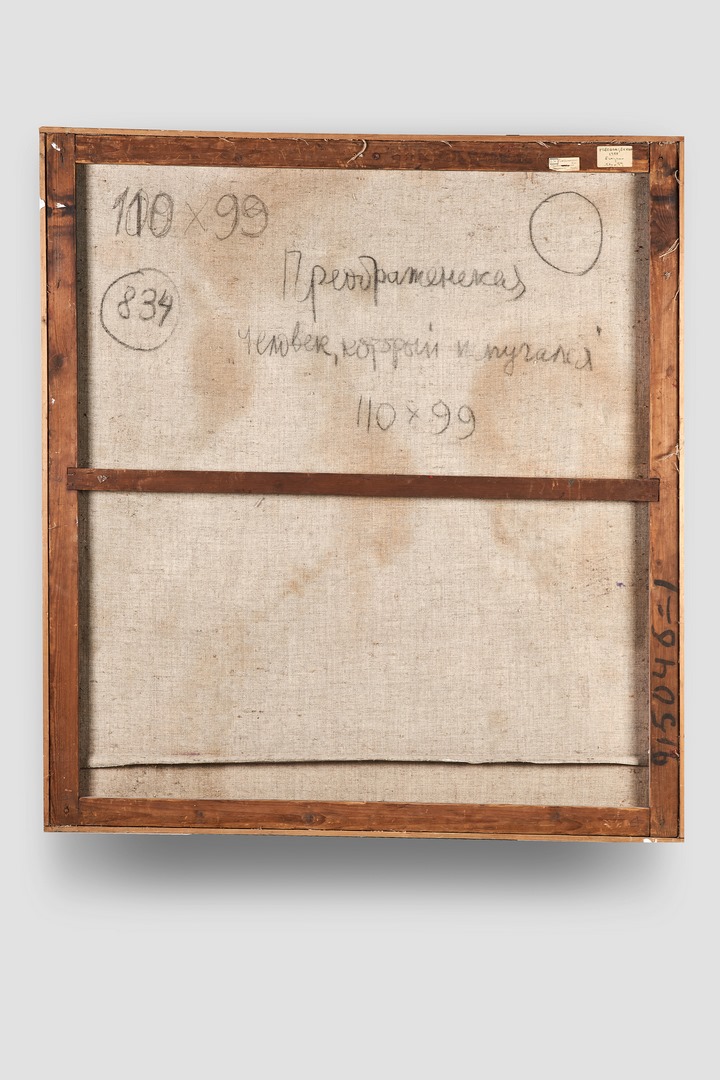 110 × 99
834
Преображенская
Человек, который испугался
110 × 99
915046=1